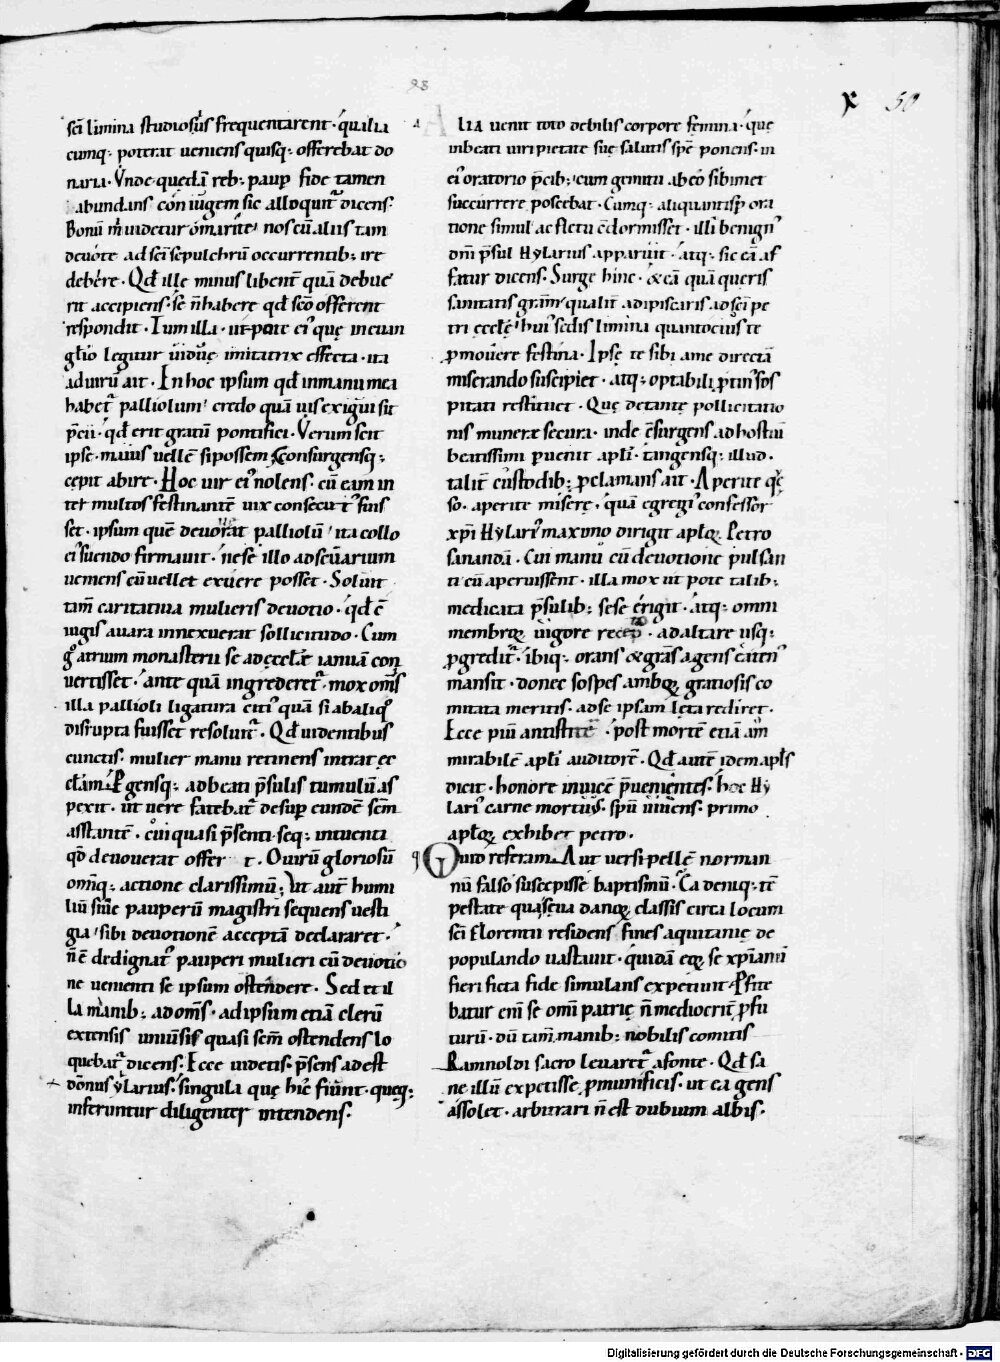 98
x 50
sc̄i limina studiosius frequentarent · qualia
cumq; poterat ueniens quisq; offerebat do
naria · Vnde quędā reb; paup̄ fide tamen
abundans coniugem sic alloquit᷒ dicens ·
Bonū m̄ uidetur o marite nos cū aliis tam
deuote ad sc̄i sepulchrū occurrentib; ire
debere · Qd̄ ille minus libent̄ quā debue
rit accipiens · se n̄ habere qd̄ sc̄o offerent
respondit · Tum illa · ut pote ei᷒ quę in euan
gl̄io legitur uiduę imitatrix effecta · ita
ad uirū ait · In hoc ipsum qd̄ in manu mea
habet᷒ palliolum credo quā uis exiguū sit
p̄cii · qd̄ erit gratū pontifici · Verum scit
ipse · maius uellē si possem & consurgensq;
cepit abire · Hoc uir ei᷒ nolens · cū eam in
ter multos festinantē uix consecut᷒ fuis
set · ipsum quē deuouerat palliolū ita collo
ei᷒ suendo firmauit · ne se illo ad seuarium
uemens cū uellet exuere posset · Soluit
tam̄ caritatiua mulieris deuotio · qd̄ ē
iugis auara innexuerat sollicitudo · Cum
g° atrium monasterii se ad ęccl̄ie ianuā con
uertisset · ante quā ingrederet᷒ · mox om̄s
illa pallioli ligatura citi᷒ quā si ab aliq°
disrupta fuisset resoluit᷒ · Qd̄ uidentibus
cunctis · mulier manu retinens intrat ęc
cl̄am · P̄gensq; ad beati p̄sulis tumulū as
pexit · ut uere fatebat᷒ desup̄ eundē sc̄m
asstantē · cui quasi p̄senti · seq; intuenti
qd̄ deuouerat offer t · O uirū gloriosū
omīq; actione clarissimū · Ut aut̄ humi
liū siue pauperū magistri sequens uesti
gia sibi deuotionē acceptā declararet ·
n̄ ē dedignat᷒ pauperi mulieri cū deuotio
ne uementi se ipsum ostendere · Sed et il
la manib; ad om̄s · ad ipsum etiā clerū
extensis uniuersis quasi sc̄m ostendens lo
quebat᷒ dicens · Ecce uidetis · p̄sens adest
domnus ylarius · singula quę hic fiunt · queq;
inferuntur diligenter intendens ·
ALIA uenit toto debilis corpore femina · quę
in beati uiri pietate suę salutis spē ponens · in
ei᷒ oratorio p̄cib; cum gemitu ab eo sibimet
succurrere poscebat · Cumq; aliquantisp̄ ora
tione simul ac fletu cōdormisset · illi benign᷒
dn̄i p̄sul Hylarius apparuit · atq; sic eā af
fatur dicens · Surge hinc · & eā quā queris
sanitatis gram̄ qualit̄ adipiscaris ad sc̄i pe
tri ęccl̄ę hui᷒ sedis limina quantocius te
p̄mouere festina · Ipsę te sibi a me directā
miserando suscipiet · atq; optabili p̄tin᷒ sos
pitati restituet · Quę de tantę pollicitatio
nis munere secura · inde c̄surgens · ad hostiū
beatissimi p̄uenit apl̄i · tangensq; illud ·
talit̄ custodib; p̄clamans ait · Aperite q̄ę
so · aperite miserę · quā egregi᷒ confessor
xp̄i Hylari᷒ maximo dirigit apl̄oꝝ Petro
sanandā · Cui manū cū deuotione pulsan
ti cū aperuissent · illa mox ut pote talib;
medicata p̄sulib; sese erigit · atq; omni
membroꝝ uigore recepto · ad altare usq;
p̄gredit᷒ · ibiq; orans & gr̄as agens c̄iten᷒
mansit · donec sospes amboꝝ gratiosis co
mitata meritis · ad se ipsam lęta rediret ·
Ecce piū antistitē post mortē etiā am̄
mirabilē apl̄i auditorē · Qd̄ autē idem apl̄s
dicit · honore inuicē p̄uenientes · hoc Hy
lari᷒ carne mortuus · sp̄u uiuens · primo
apl̄oꝝ exhibet petro ·
Quid referam · Aut uersipellē norman
nū falso suscepisse baptismū · Ea deniq; tē
pestate qua sęua danoꝝ classis circa locum
sc̄i Florentii residens fines aquitanię de
populando uastauit · quidā eoꝝ se xp̄ianū
fieri ficta fide simulans expetiuit · P̄fite
batur eni se omī patrię n̄ mediocrit̄ p̄fu
turū · dū tam̄ manib; nobilis comitis
Ramnoldi sacro leuaret᷒ a fonte · Qd̄ sa
ne illū expetisse p̄ munificis · ut ea gens
assolet · arbitrari n̄ est dubium albis ·
Digitalisierung gefördert durch die Deutsche Forschungsgemeinschaft · DFG